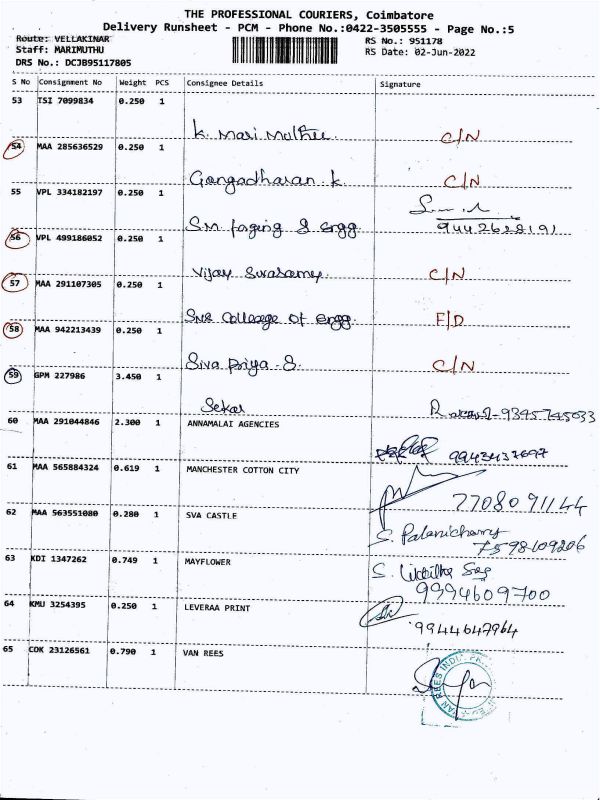 THE PROFESSIONAL COURIERS, Coimbatore
Delivery Runsheet - PCM - Phone No.:0422-3505555 - Page No.:5
Route: VELLAKINAR
RS No.: 951178
Staff: MARIMUTHU
RS Date: 02-Jun-2022
DRS No.: DCJB95117805
S No Consignment No Weight PCS Consignee Details Signature
53 TSI 7099834 0.250 1
K. Mari Muthu C/N
54 MAA 285636529 0.250 1
Gangadharan K C/N
55 VPL 334182197 0.250 1
SM forging & Engg 9442628191
56 VPL 499186052 0.250 1
Vijay C/N
57 MAA 291107305 0.250 1
SNS College of Engg F/D
58 MAA 942213439 0.250 1
Siva Priya . S C/N
59 GPM 227986 3.450 1
Sekar 9395745033
60 MAA 291044846 2.300 1 ANNAMALAI AGENCIES
9943437697
61 MAA 565884324 0.619 1 MANCHESTER COTTON CITY
2708091144
62 MAA 563551080 0.280 1 SVA CASTLE
S. Palanichamy
7598109206
63 KDI 1347262 0.749 1 MAYFLOWER
9994609700
64 KMU 3254395 0.250 1 LEVERAA PRINT
9944647964
65 COK 23126561 0.790 1 VAN REES
VAN REES INDIA